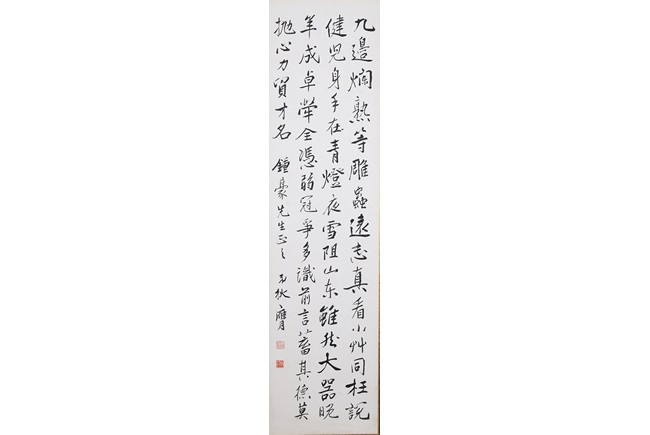 九邊爛熟等雕蟲遠志真看小艸同枉說
健兒身手在青燈夜雪阻山东雖然大器晚
年成卓犖全憑弱冠爭多識前言蓄其德莫
拋心力貿才名 鍾豪先生正之 狄膺